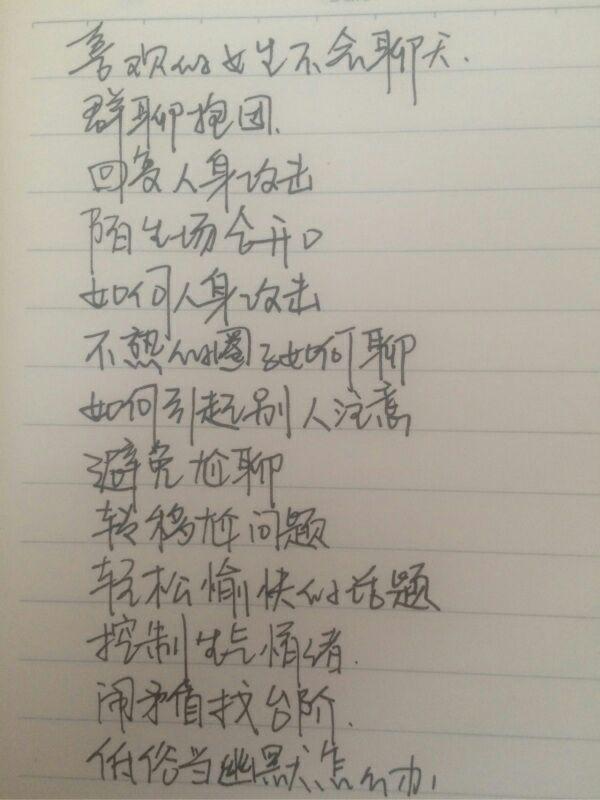 喜欢的女生不会聊天.
群聊抱团.
回复人身攻击
陌生场合开口
如何人身攻击
不熟的圈子如何聊
如何引起别人注意
避免尬聊
转移尬问题
轻松愉快的话题
控制生气情绪.
闹矛盾找台阶.
低俗当幽默怎么办.